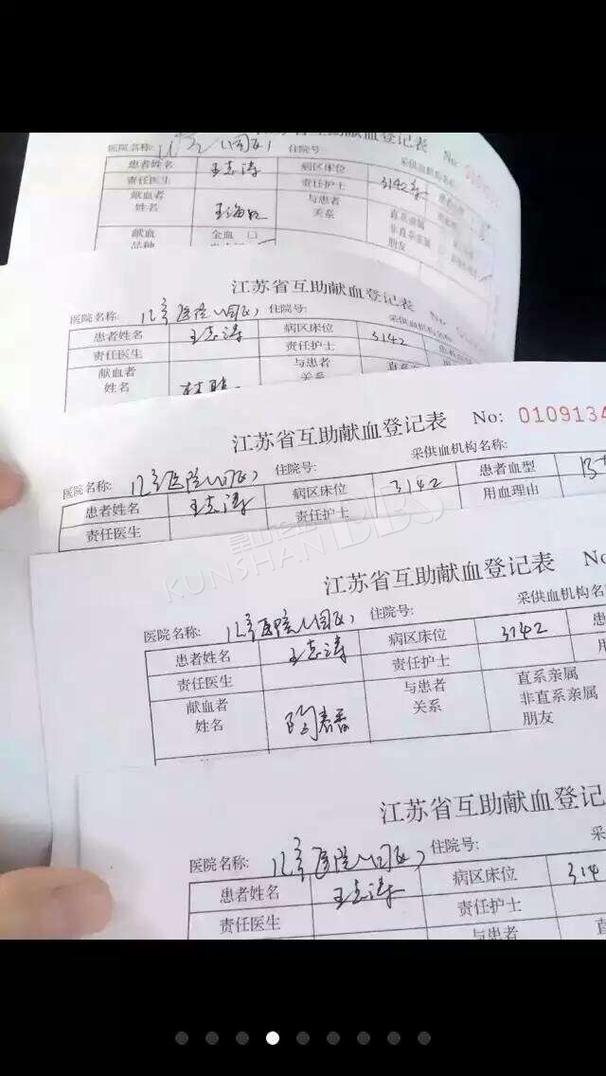 江苏省互助献血登记表 No:
医院名称: 住院号: 采供血机构名称:
患者姓名 王志涛 病区床位 3142
责任医生 责任护士
献血者 与患者 直系亲属
姓名 关系 非直系亲属
朋友
献血 全血 □
品种
江苏省互助献血登记表 No:
医院名称: 儿童医院(园区) 住院号: 采供血机构名称
患者姓名 王志涛 病区床位 3142
责任医生 责任护士
献血者 与患者 直系
姓名 关系
江苏省互助献血登记表 No: 0109134
医院名称: 儿童医院(园区) 住院号: 采供血机构名称:
患者姓名 王志涛 病区床位 3142 患者血型
责任医生 责任护士 用血理由
KUNSHAN BBS
江苏省互助献血登记表 No
医院名称: 儿童医院(园区) 住院号: 采供血机构名
患者姓名 王志涛 病区床位 3142
责任医生 责任护士
献血者 与患者 直系亲属
姓名 陶春香 关系 非直系亲属
朋友
江苏省互助献血登记
医院名称: 儿童医院(园区) 住院号:
患者姓名 王志涛 病区床位 314
责任医生 责任护士
与患者